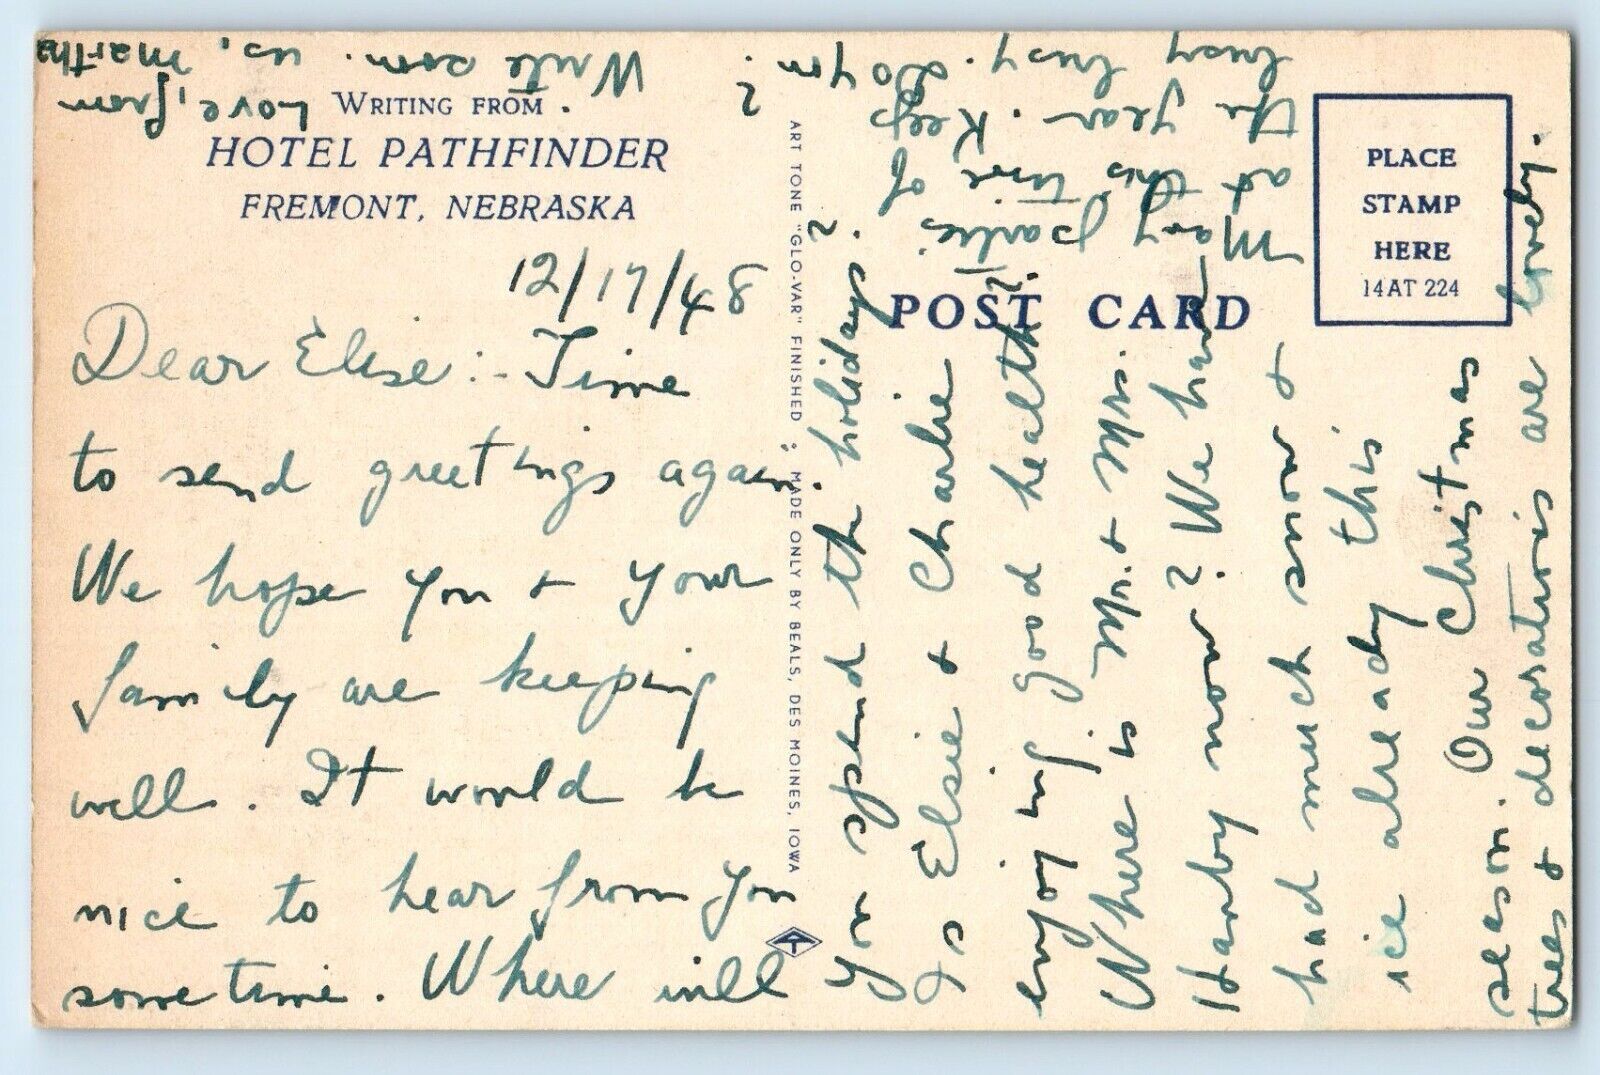 WRITING FROM
HOTEL PATHFINDER
FREMONT, NEBRASKA
12/17/48
Dear Elise:- Time
to send greetings again.
We hope you + your
family are keeping
well. It would be
nice to hear from you
sometime. Where will
you spend the holidays?
Is Elsie + Charlie
enjoying good health?
Where is Mr. + Mrs.
Hanby now? We have
had much snow +
ice already this
season. Our Christmas
trees + decorations are lovely.
Many parties
at this time of
the year. Keep
busy busy. Do you
?
Write soon.
Love, from
us, Martha
ART TONE "GLO-VAR" FINISHED MADE ONLY BY BEALS, DES MOINES, IOWA
POST CARD
PLACE
STAMP
HERE
14AT 224